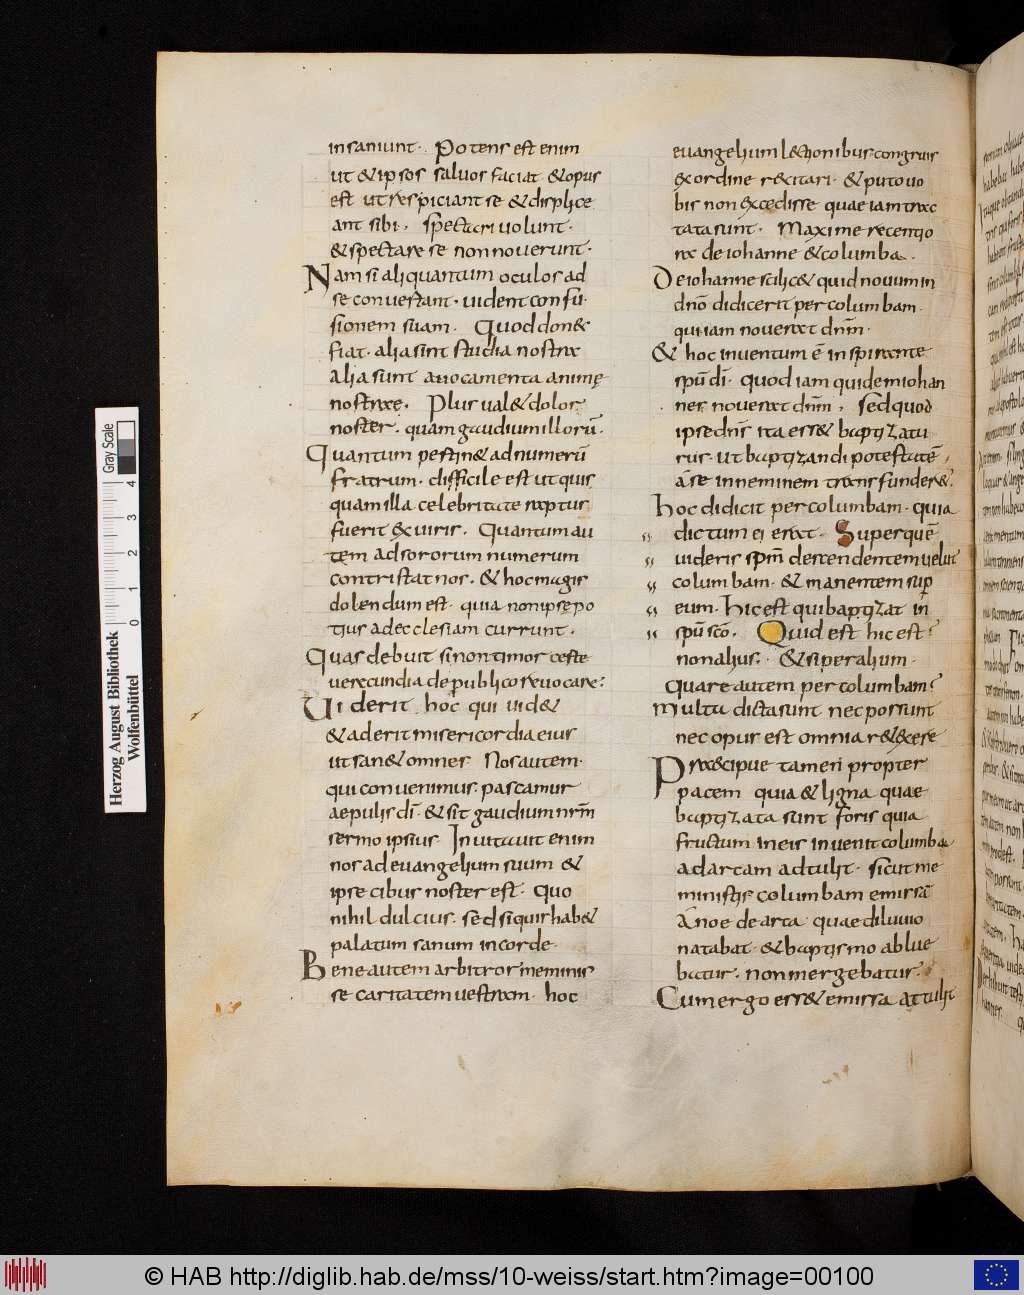 insaniunt· Potens est enim
ut & ipsos saluos faciat &opus
est ut respiciant se & displice
ant sibi, spectari uolunt·
& spectare se non nouerunt·
Nam si aliquantum oculos ad
se conuertant· uident confu
sionem suam· Quod don&
fiat· alia sint studia nostra
alia sunt auocamenta animę
nostrae. Plus ual& dolor
noster. quam gaudium illorū·
Quantum pertin& ad numerū
fratrum. difficile est ut quis
quam illa celebritate raptus
fuerit & uiris. Quantum au
tem ad sororum numerum
contristat nos. & hoc magis
dolendum est· quia non ipse po
tius ad ecclesiam currunt·
Quas debuit si non timor certe
uerecundia de publico reuocare:
Uiderit hoc qui uid&
& aderit misericordia eius
ut san& omnes Nos autem·
qui conuenimus· pascamur
aepulis dī· & sit gaudium nr̄m
sermo ipsius· Inuitauit enim
nos ad euangelium suum &
ipse cibus noster est· quo
nihil dulcius. sed si quis hab&
palatum sanum in corde·
Bene autem arbitror meminis
se caritatem uestram· hoc
euangelium l&tionibus congruis
ex ordine r&citari· & puto uo
bis non excedisse quae iam trac
tata sunt. Maxime recentio
ra de iohanne & columba.
De iohanne scilic& quid nouum in
dnō didicerit per columbam·
qui iam nouerat dnm̄·
& hoc inuentum ē inspirante
spū dī· quod iam quidem iohan
nes nouerat dnm̄, sed quod
ipse dns̄ ita ess& baptizatu
rus· ut baptizandi potestatē,
á se in neminem transfunder&·
hoc didicit per columbam· quia
dictum ei erat· Super quē
uideris spm̄ descendentem uelut
columbam· & manentem sup
eum· hic est qui baptizat in
spū scō. Quid est hic est?
non alius·. & si per alium·
quare autem per columbam?
multa dicta sunt nec possunt
nec opus est omnia r&exere
Praecipue tamen propter
pacem quia & ligna quae
baptizata sunt foris quia
fructum in eis inuenit columba
ad arcam adtulit· sicut me
ministis columbam emissā
A noe de arca quae diluuio
natabat· & baptismo ablue
batur. non mergebatur.
Cum ergo ess& emissa attulit
Herzog August Bibliothek
Wolfenbüttel
0 1 2 3 4
Gray Scale
© HAB http://diglib.hab.de/mss/10-weiss/start.htm?image=00100